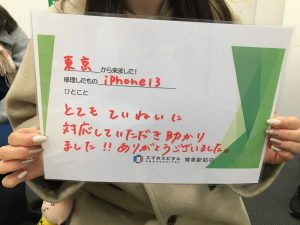 東京 から来ました！
修理したもの iPhone13
ひとこと
とても ていねいに
対応していただき助かり
ました!! ありがとうございました。
スマホスピタル 博多駅前店